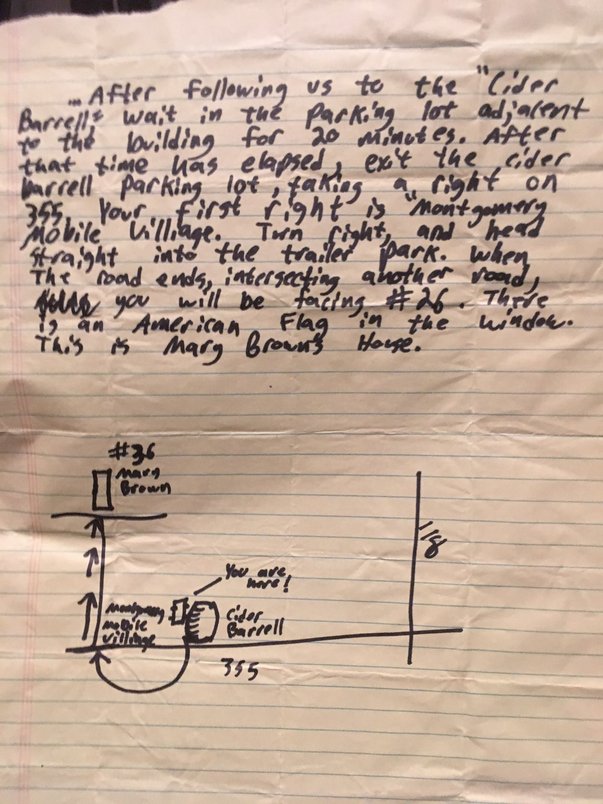 ...After following us to the "Cider
Barrell" wait in the parking lot adjacent
to the building for 20 minutes. After
that time has elapsed, exit the cider
barrell parking lot, taking a right on
355. Your first right is "Montgomery
Mobile Village. Turn right, and head
straight into the trailer park. when
The road ends, intersecting another road,
you will be facing #26. There
is an American Flag in the window.
This is Mary Brown's House.
#36
Mary
Brown
You are
here!
Montgomery
mobile
village
Cider
Barrell
355